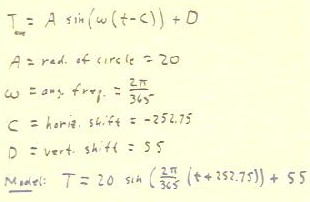 T_ave = A sin(ω(t-C)) + D
A = rad. of circle = 20
ω = ang. freq. = 2π/365
C = horiz. shift = -252.75
D = vert. shift = 55
Model: T = 20 sin (2π/365 (t+252.75)) + 55